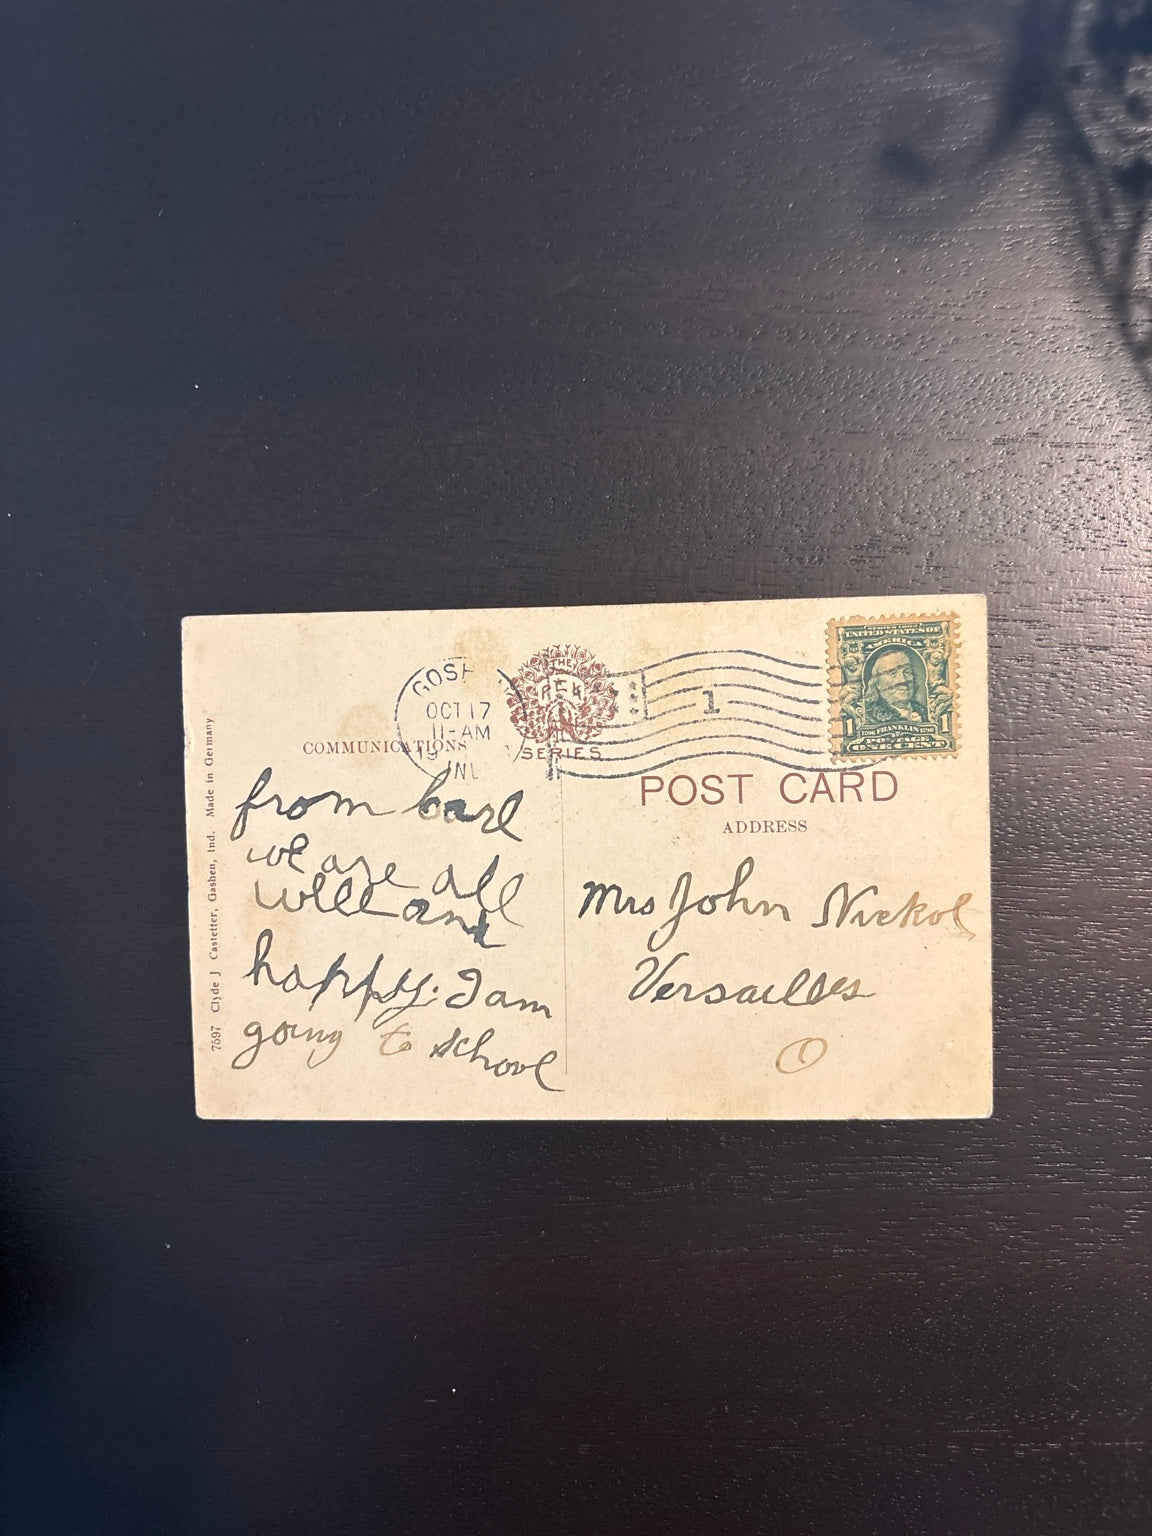 GOSH
OCT 17
11-AM
19
IND
THE
PCK
SERIES
1
SERIES 1902
UNITED STATES OF
AMERICA
1 1
1706 FRANKLIN 1790
ONE CENT
COMMUNICATIONS
POST CARD
ADDRESS
from Carl
we are all
well and
happy. I am
going to school
Mrs John Nickol
Versailles
O
7597 Clyde J Castetter, Gashen, Ind. Made in Germany